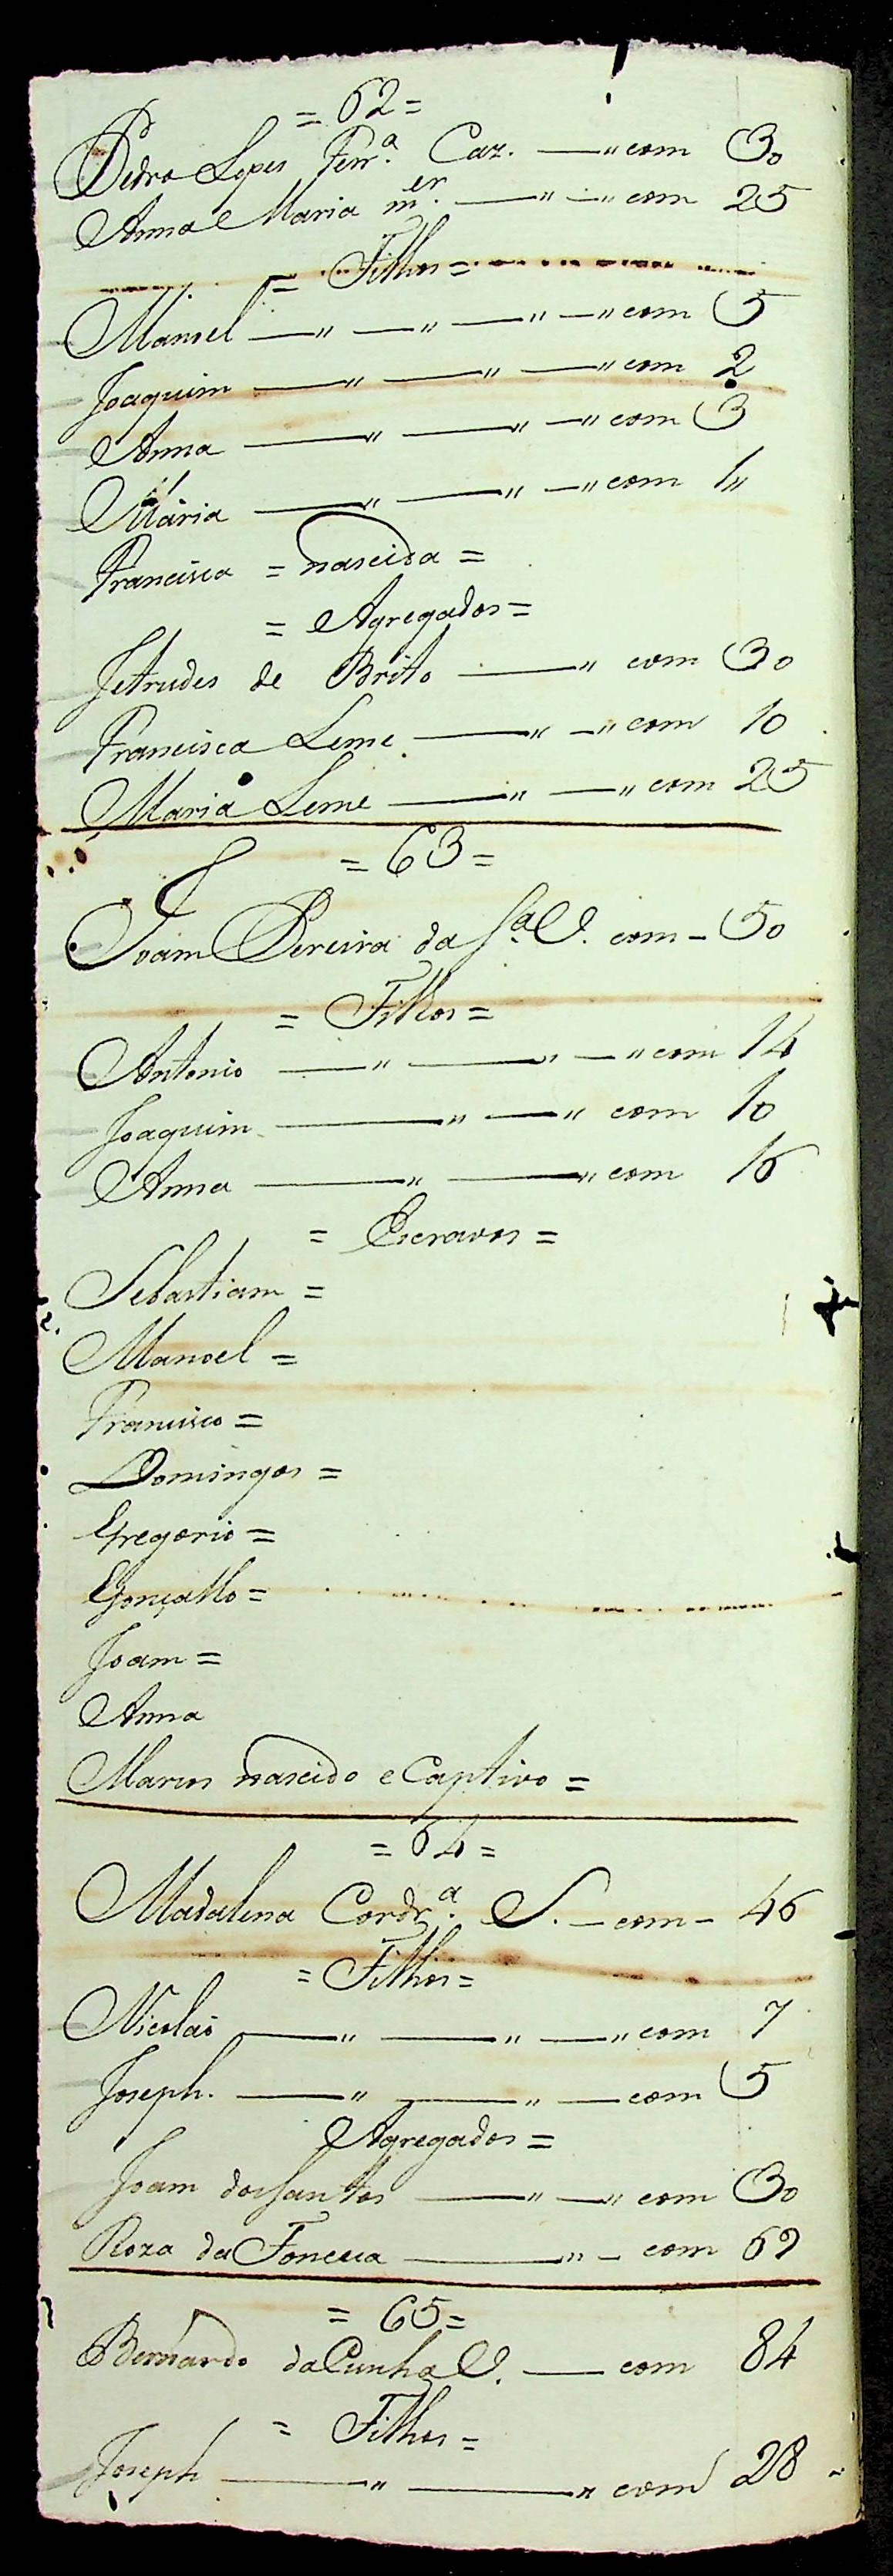 = 62 =
Pedro Lopes Ferr.ª Caz. —„ com 30
Anna Maria m.er —„ —„ com 25
= Filhos =
Manoel —„ —„ —„ —„ com 5
Joaquim —„ —„ —„ com 2
Anna —„ —„ —„ com 3
Maria —„ —„ —„ com 1„
Francisca = nascida =
= Agregados =
Jetrudes de Brito —„ com 30
Francisca Leme —„ —„ com 10
Maria Leme —„ —„ com 25
= 63 =
Joam Pereira da S.ª V. com - 50
= Filhos =
Antonio —„ —„ —„ com 14
Joaquim —„ —„ com 10
Anna —„ —„ com 16
= Escravos =
Sebastiam =
Manoel =
Francisco =
Domingos =
Gregorio =
Gonçallo =
Joam =
Anna
Marcos nascido e Captivo =
= 64 =
Madalena Cordr.ª S. — com - 46
= Filhos =
Nicolao —„ —„ —„ com 7
Joseph. —„ —„ — com 5
Agregados =
Joam dos Santos —„ —„ com 30
Roza da Fonceca —„ - com 62
= 65 =
Bernardo da Cunha V. — com 84
= Filhos =
Joseph —„ —„ com 28